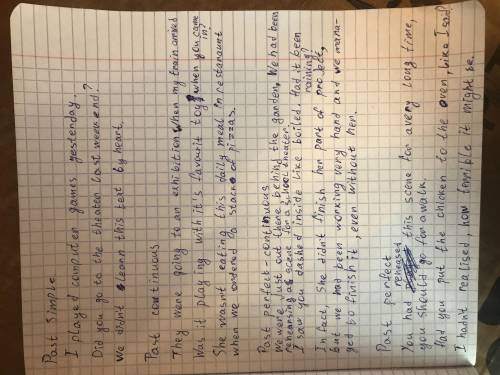 Past Simple
I played computer games yesterday.
Did you go to the theater last weekend?
We didn't learn this text by heart.
Past continuous
They were going to an exhibition when my train arrived
Was it playing with it's favourit toy when you came in?
She wasn't eating this daily meal in restaraunt
when we ordered a stack of pizzas.
Past perfect-continuous
We were just out there behind the garden, We had been
rehearsing a scene for a school theater.
I saw you dashed inside like boiled. Had it been raining?
In fact, She didn't finish her part of project,
but we had been working very hand and we mana-
ged to finish it, even without her.
Past perfect
You had rehersed this scene for a very long time,
you should go for a walk.
Had you put the chicken to the oven, like I said
I hadn't realised how terrible it might be.